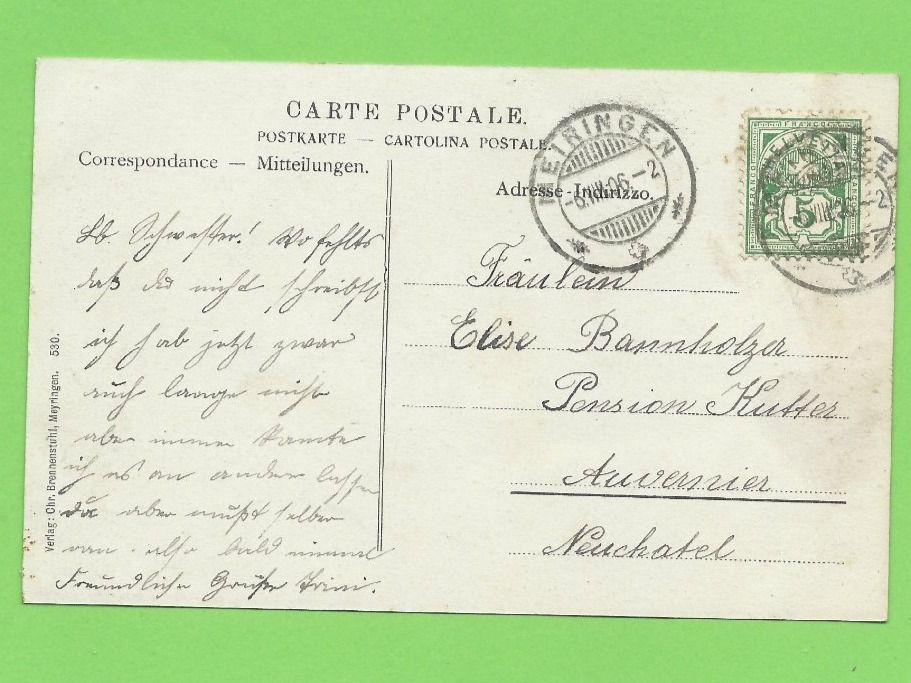 CARTE POSTALE.
POSTKARTE — CARTOLINA POSTALE.
Correspondance — Mitteilungen.
Adresse-Indirizzo.
MEIRINGEN
-6.VIII.06.-2
FRANCO
HELVETIA
5
Lb. Schwester! Wo fehlts
daß du nicht schreibst
ich hab jetzt zwar
auch lange nicht
aber immer konnte
ich es an andere
du aber mußt selber
also bald einmal
Freundliche Grüße Trini.
Fräulein
Elise Bannholzer
Pension Kutter
Auvernier
Neuchatel
Verlag: Chr. Brennenstuhl, Meyringen. 530.